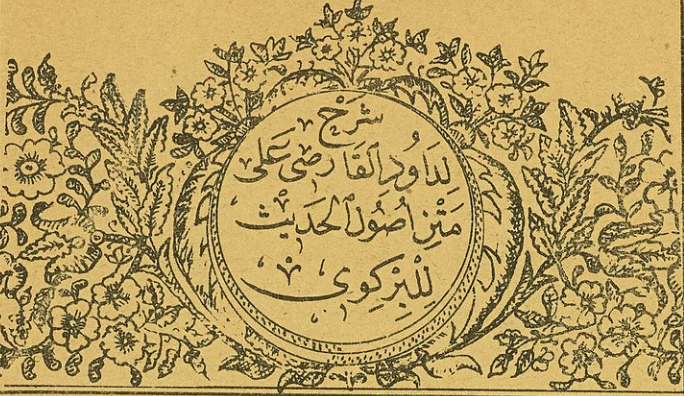 شَرْح
لِدَاوُدَ الْقَارِصِى عَلَى
مَتْنِ اُصُولِ الْحَدِيثِ
لِلْبِرْكَوِى